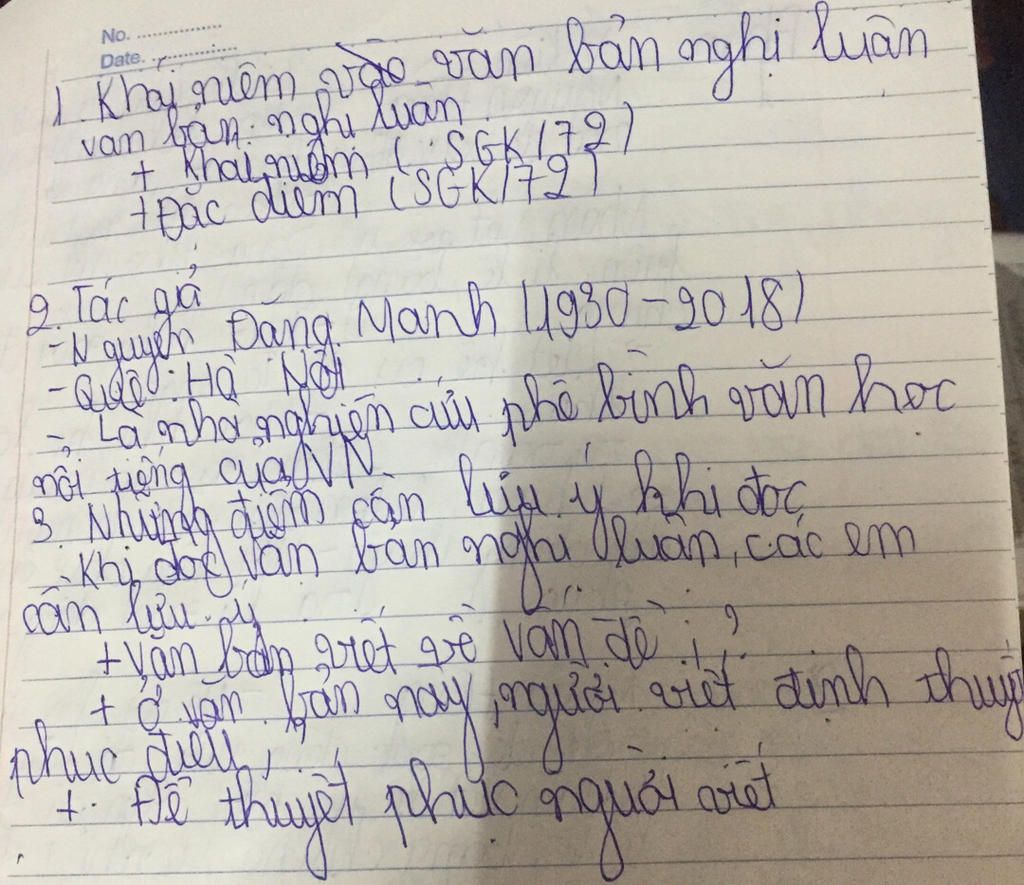 No. ..............
Date. ..............
1. Khái niệm vào văn bản nghị luận
văn bản nghị luận
+ Khái niệm ( SGK/72)
+ Đặc điểm (SGK/72)
2. Tác giả
- Nguyễn Đăng Mạnh (1930-2018)
- Quê: Hà Nội
- Là nhà nghiên cứu phê bình văn học
nổi tiếng của VN
3. Những điểm cần lưu ý khi đọc
- Khi đọc văn bản nghị luận, các em
cần lưu ý
+ Văn bản viết về vấn đề ?
+ Ở văn bản này, người viết định thuyết
phục điều
+ Để thuyết phục người viết